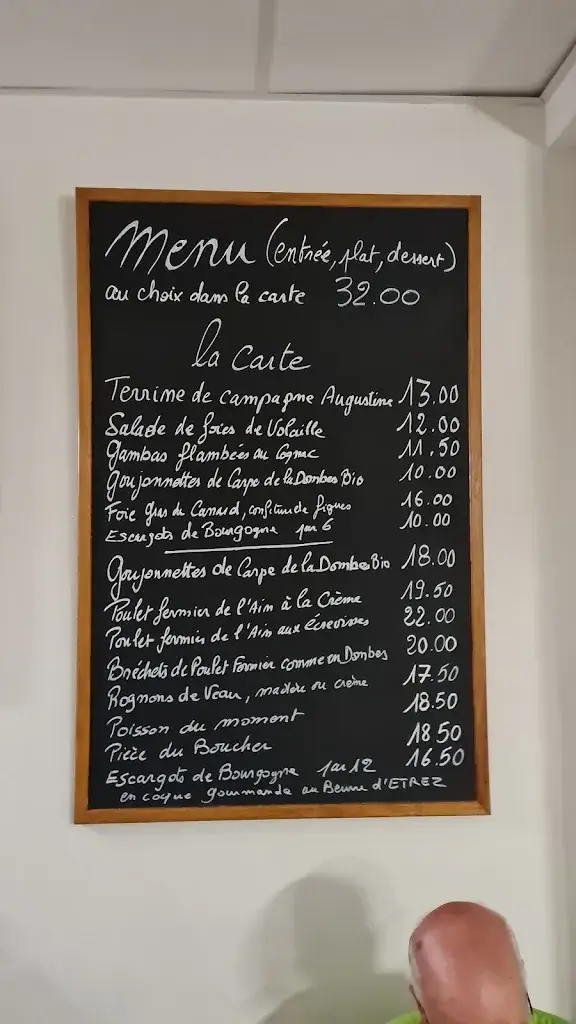 Menu (entrée, plat, dessert)
au choix dans la carte 32.00
la carte
Terrine de campagne Augustine 13.00
Salade de foies de Volaille 12.00
Gambas flambées au Cognac 11.50
Goujonnettes de Carpe de la Dombes Bio 10.00
Foie gras de Canard, confiture de figues 16.00
Escargots de Bourgogne par 6 10.00
Goujonnettes de Carpe de la Dombes Bio 18.00
Poulet fermier de l'Ain à la Crème 19.50
Poulet fermier de l'Ain aux écrevisses 22.00
Bréchets de Poulet Fermier comme en Dombes 20.00
Rognons de Veau, madère ou crème 17.50
Poisson du moment 18.50
Pièce du Boucher 18.50
Escargots de Bourgogne par 12 16.50
en coque gourmande au Beurre d'ETREZ